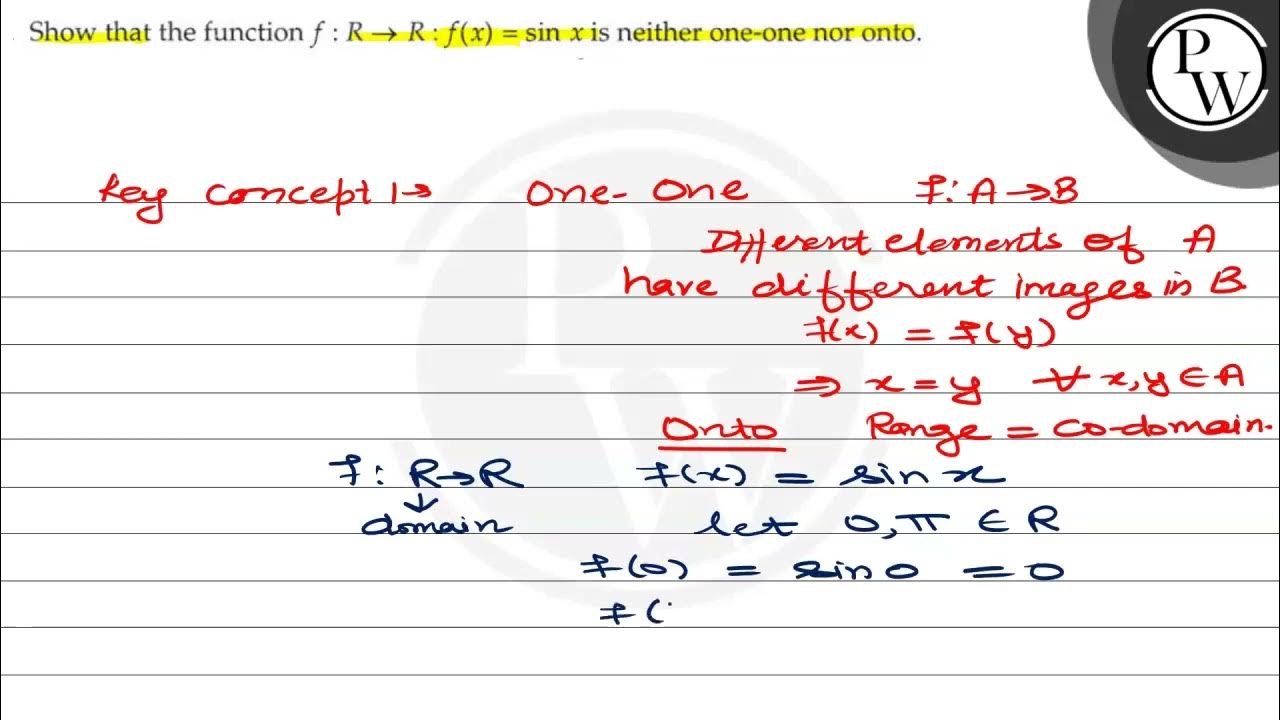 Show that the function f : R → R : f(x) = sin x is neither one-one nor onto.
PW
Key concept 1→ One-One f: A→B
Different elements of A
have different images in B.
f(x) = f(y)
⇒ x = y ∀ x, y ∈ A
Onto Range = Co-domain.
f: R→R f(x) = sin x
↓
domain let 0, π ∈ R
f(0) = sin 0 = 0
f(